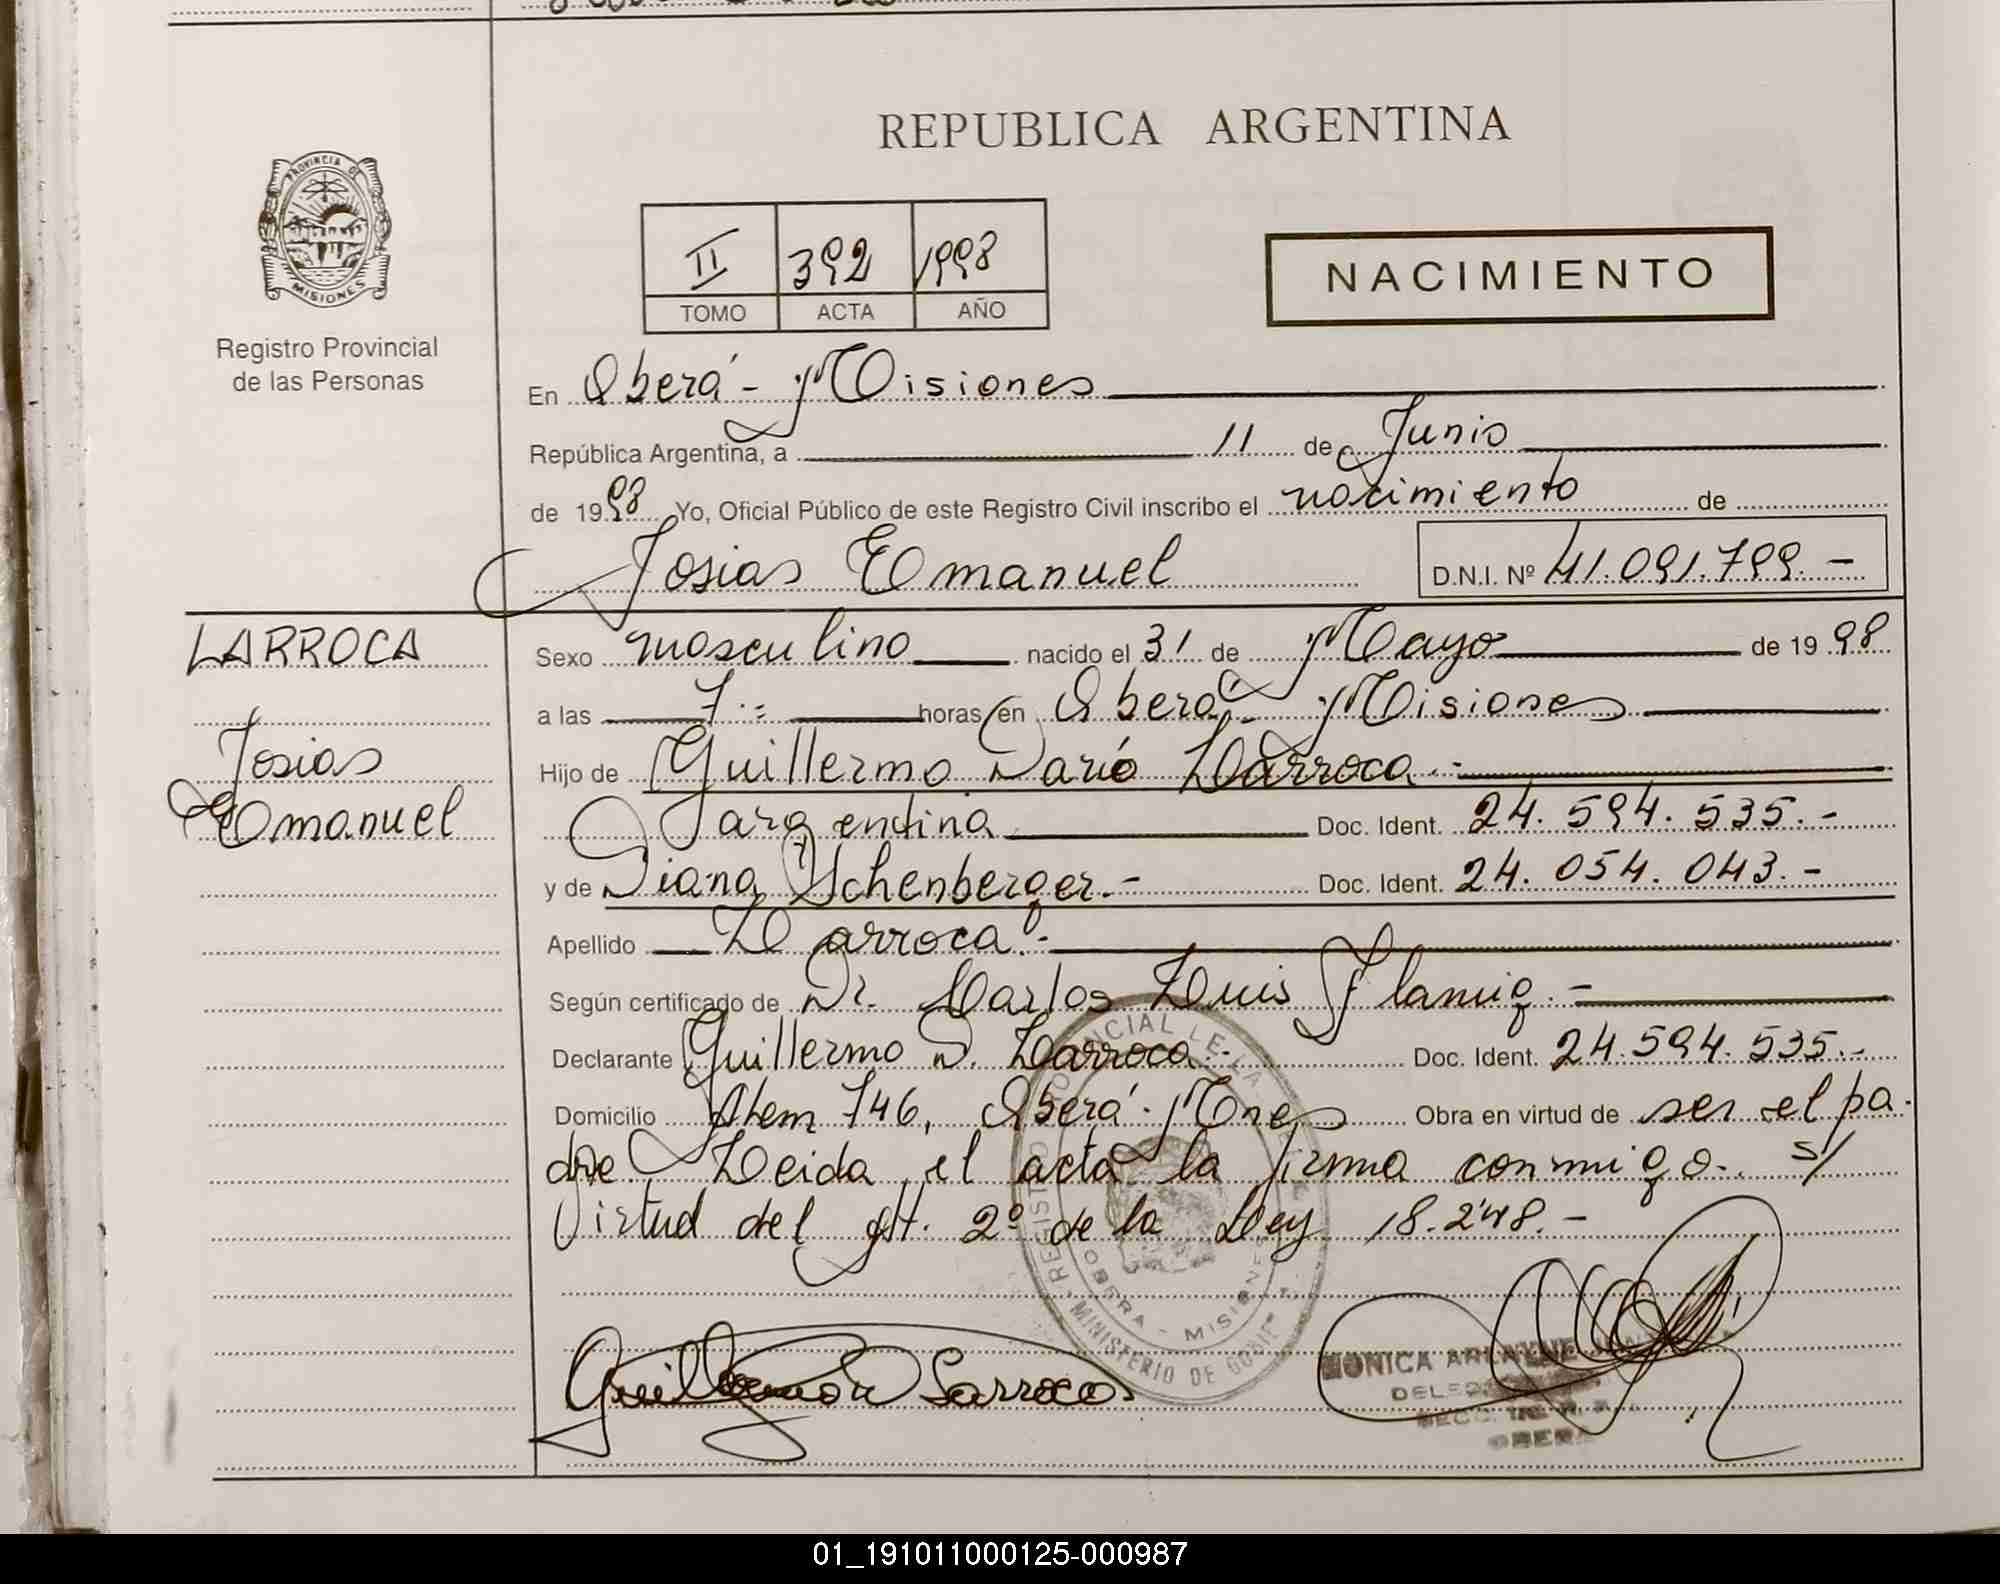 REPUBLICA ARGENTINA
PROVINCIA DE
MISIONES
Registro Provincial
de las Personas
II 392 1998
TOMO ACTA AÑO
NACIMIENTO
En Oberá - Misiones
República Argentina, a 11 de Junio
de 1998 Yo, Oficial Público de este Registro Civil inscribo el nacimiento de
Josias Emanuel D.N.I. Nº 41.091.799.-
LARROCA
Josias
Emanuel
Sexo masculino nacido el 31 de Mayo de 1998
a las 7.= horas en Oberá - Misiones
Hijo de Guillermo Darío Larroca.-
y argentina Doc. Ident. 24.594.535.-
y de Diana Schenberger.- Doc. Ident. 24.054.043.-
Apellido Larroca.-
Según certificado de Dr. Carlos Luis Flamig.-
Declarante Guillermo D. Larroca.- Doc. Ident. 24.594.535.-
Domicilio Alem 746, Oberá - Mnes Obra en virtud de ser el pa
dre Leida el acta la firma conmigo.- S/
Virtud del art. 2º de la Ley 18.248.-
REGISTRO PROVINCIAL DE LA
OBERA - MISIONES
MINISTERIO DE GOBIE
Guillermo Larroca
MONICA
OBERA
01_191011000125-000987